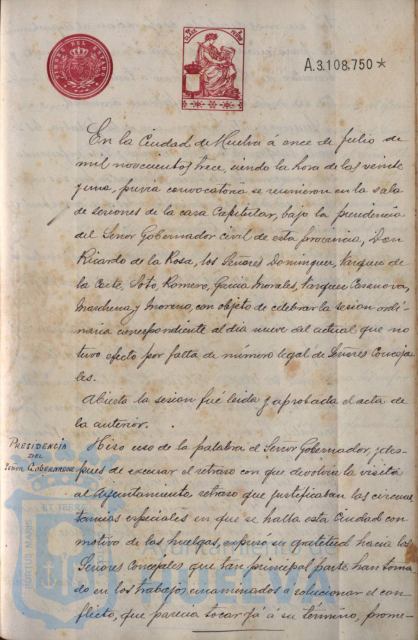 A.3.108.750*
En la Ciudad de Huelva á once de Julio de
mil novecientos trece, siendo la hora de las veinte
y una, previa convocatoria se reunieron en la sala
de sesiones de la casa Capitular, bajo la presidencia
del Señor Gobernador civil de esta provincia, Don
Ricardo de la Rosa, los Señores Dominguez, Vazquez de
la Corte, Soto, Romero, Garcia Morales, Vazquez Casanova,
Marchena y Moreno, con objeto de celebrar la sesion ordi-
naria correspondiente al dia nueve del actual que no
tuvo efecto por falta de número legal de Señores Conceja-
les.
Abierta la sesion fué leida y aprobada el acta de
la anterior.
PRESIDENCIA
DEL
SEÑOR GOBERNADOR
Hizo uso de la palabra el Señor Gobernador, y des-
pues de excusar el retraso con que devolvia la visita
al Ayuntamiento, retraso que justificaban las circuns
tancias especiales en que se halla esta Ciudad con
motivo de las huelgas, expuso su gratitud hacia los
Señores Concejales que tan principal parte han toma
do en los trabajos encaminados a solucionar el con-
flicto, que parecia tocar ya á su término, prome-
Ayuntamiento de
HUELVA
PORTUS MARIS ET TERRAE